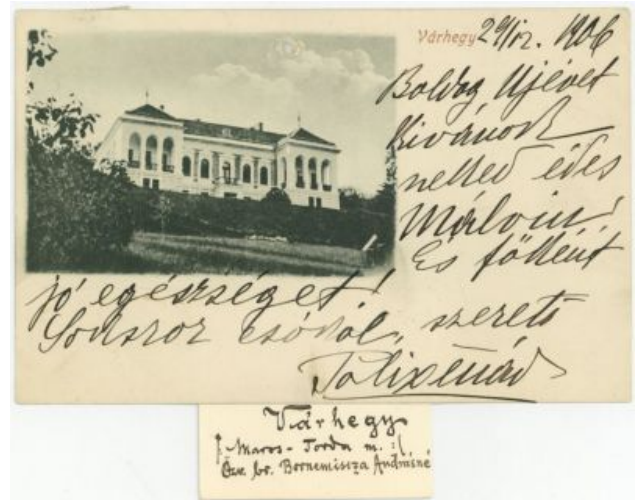 Várhegy 29/12. 1906
Boldog Ujévet
Kivánok
neked édes
Málvin!
És főként
jó egészséget!
Sokszor csókol, szerető
Polixénád
Várhegy
Maros-Torda m. :(
Özv. br. Bornemissza